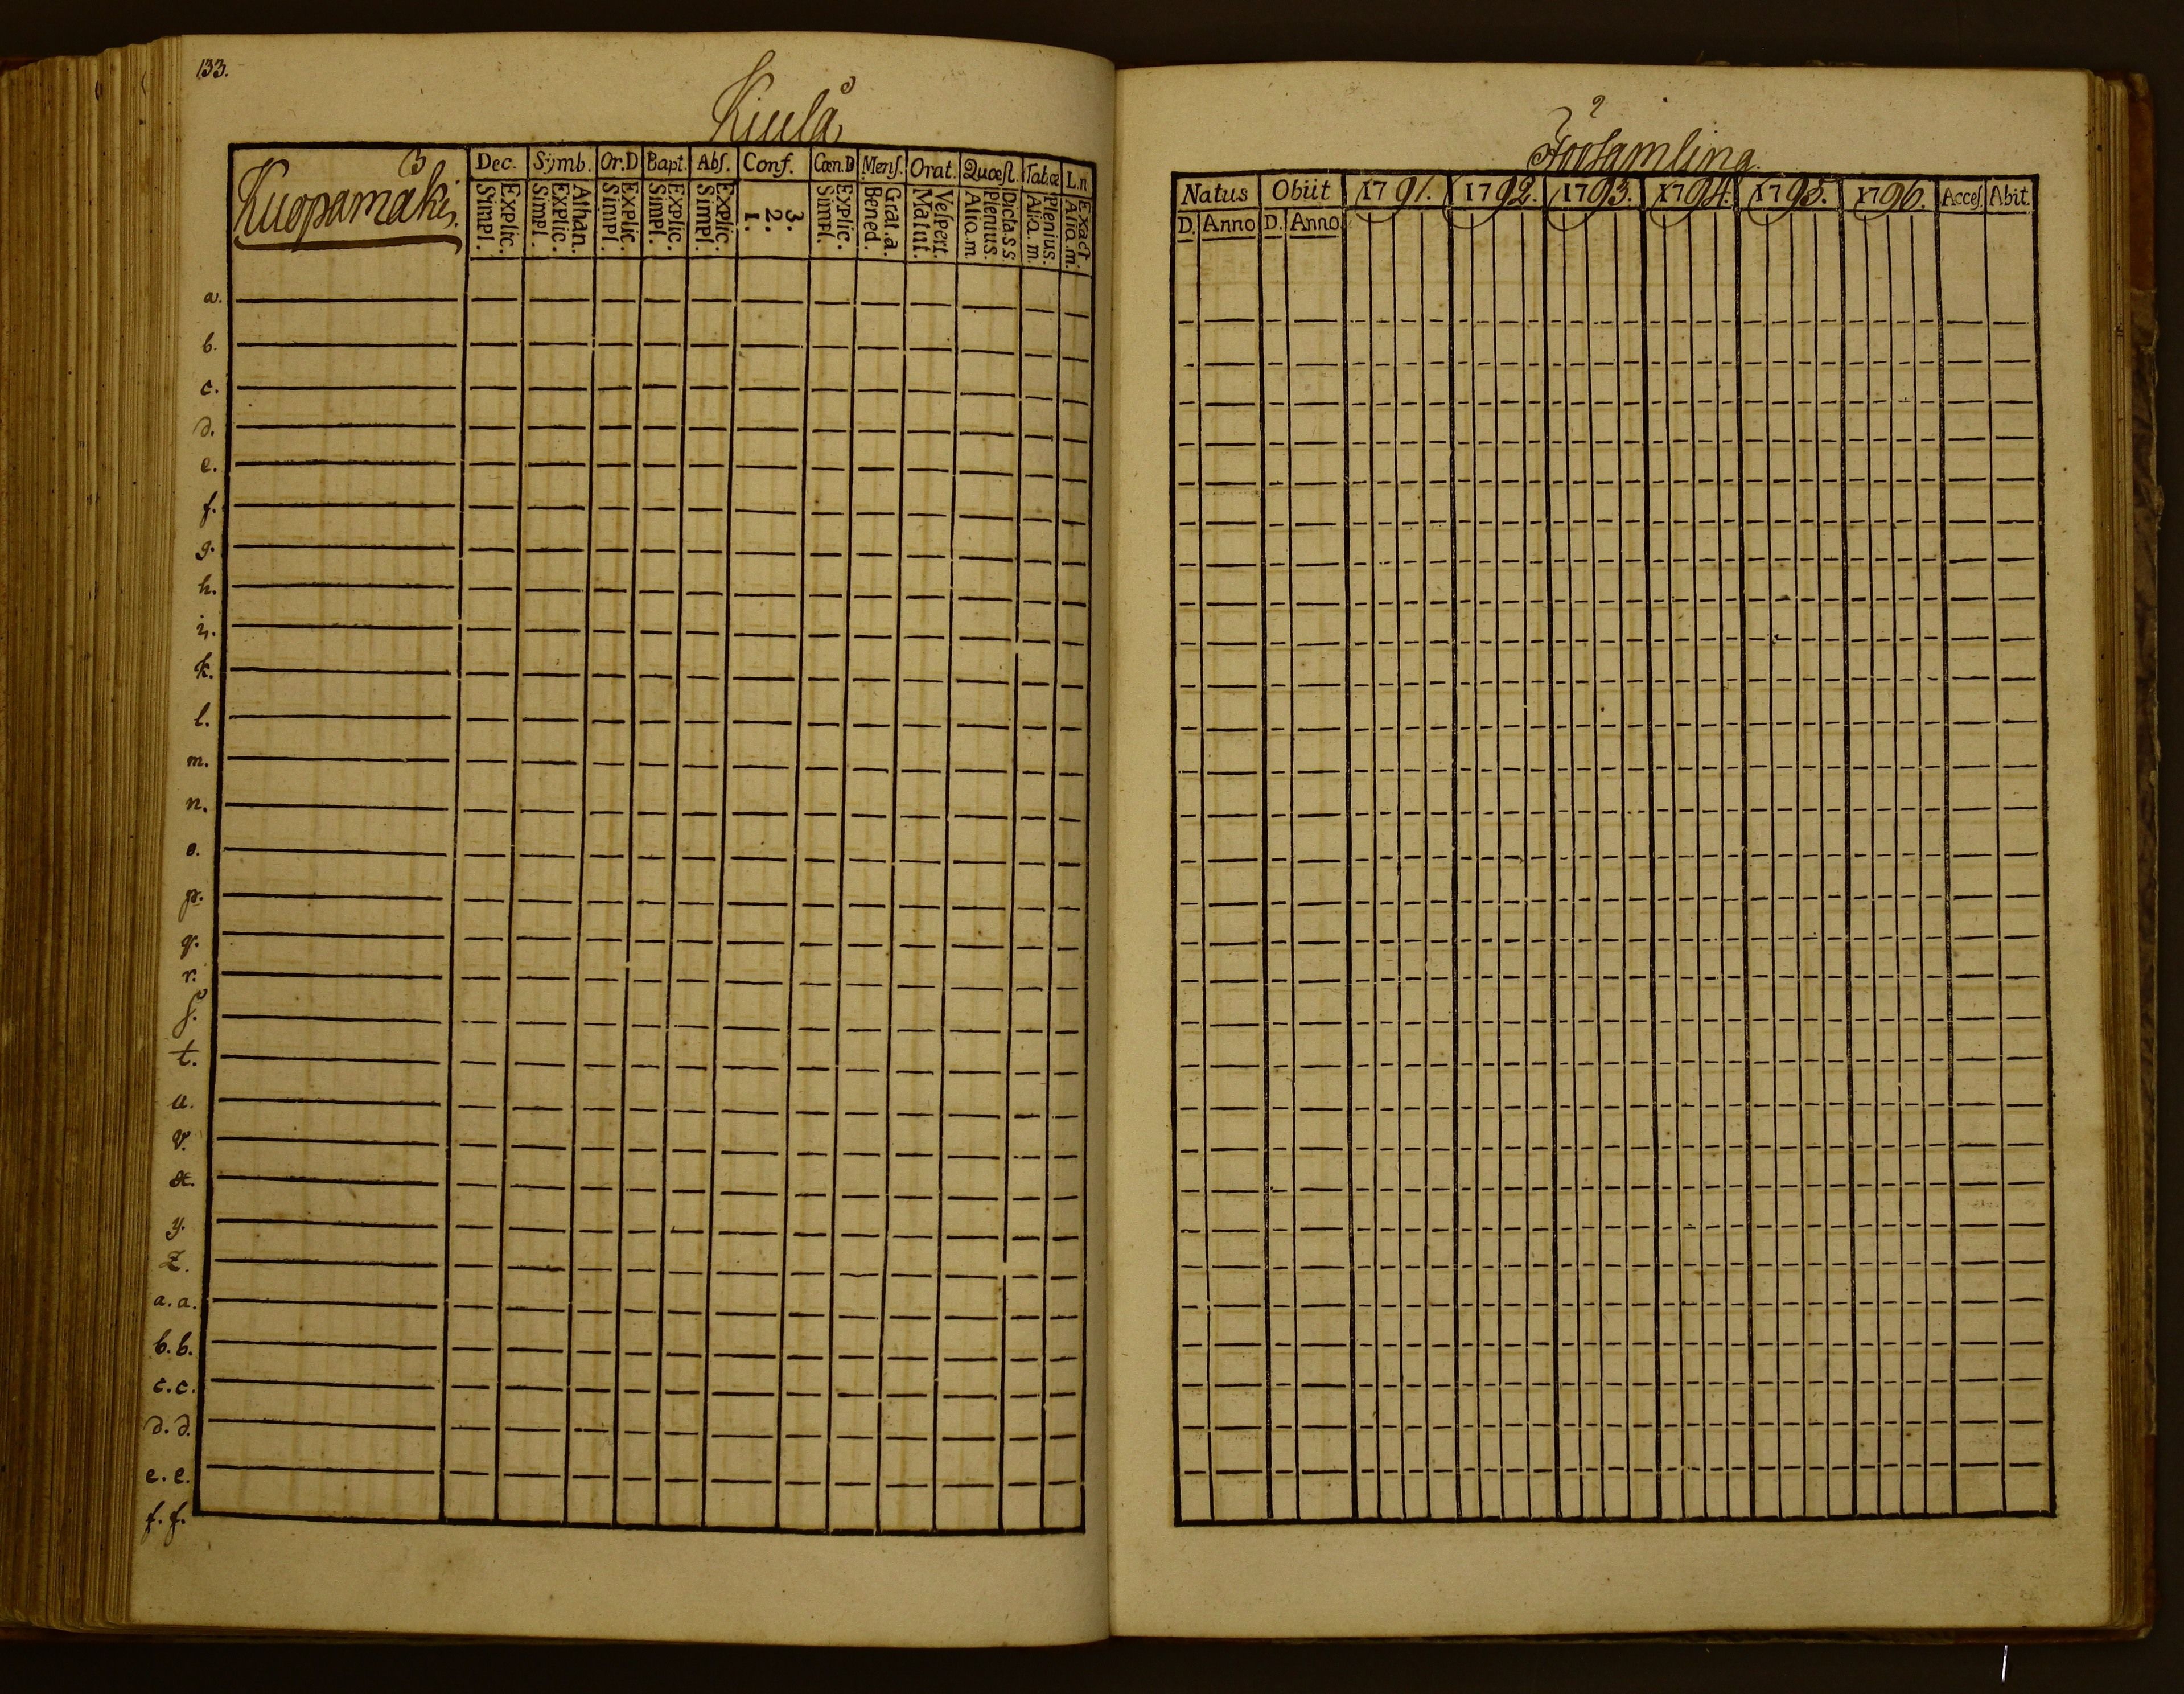 133.
Kiulå
Kuopamäki.
Dec. Symb. Or.D Bapt. Abſ. Conf. Cœn.D Menſ. Orat. Quœſt. Tab.œ L.n
Explic. Simpl. Athan. Explic. Simpl. Explic. Simpl. Explic. Simpl. Explic. Simpl. 3. 2. 1. Explic. Simpl. Grat.a. Bened. Veſpert. Matut. Dicta.s.s Plenius. Aliq.m Plenius. Aliq.m. Exact. Aliq.m.
a.
b.
c.
d.
e.
f.
g.
h.
i.
k.
l.
m.
n.
o.
p.
q.
r.
ſ.
t.
u.
v.
x.
y.
Z.
a.a.
b.b.
c.c.
d.d.
e.e.
f.f.
Församling.
Natus Obiit 1791. 1792. 1793. 1794. 1795. 1796. Acceſ. Abit.
D. Anno D. Anno